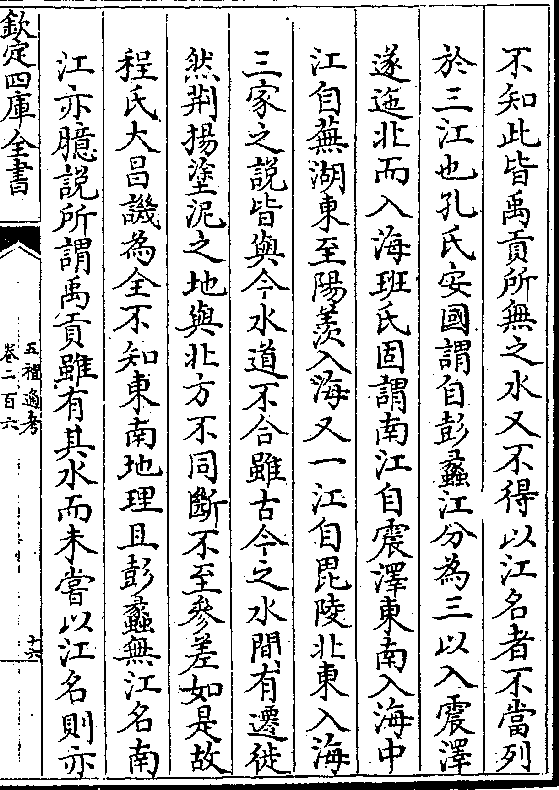 不知此皆禹貢所無之水又不得以江名者不當列
於三江也孔氏安國謂自彭蠡江分為三以入震澤
遂迤北而入海班氏固謂南江自震澤東南入海中
江自蕪湖東至陽羨入海又一江自毘陵北東入海
三家之說皆與今水道不合雖古今之水間有遷徙
然荆揚塗泥之地與北方不同斷不至參差如是故
程氏大昌譏為全不知東南地理且彭蠡無江名南
江亦臆說所謂禹貢雖有其水而未嘗以江名則亦
欽定四庫全書
五禮通考
卷二百六
十六